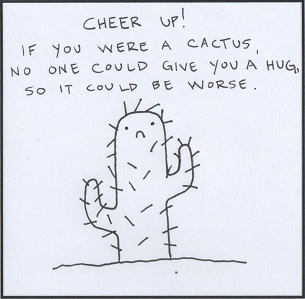 CHEER UP!
IF YOU WERE A CACTUS,
NO ONE COULD GIVE YOU A HUG,
SO IT COULD BE WORSE.